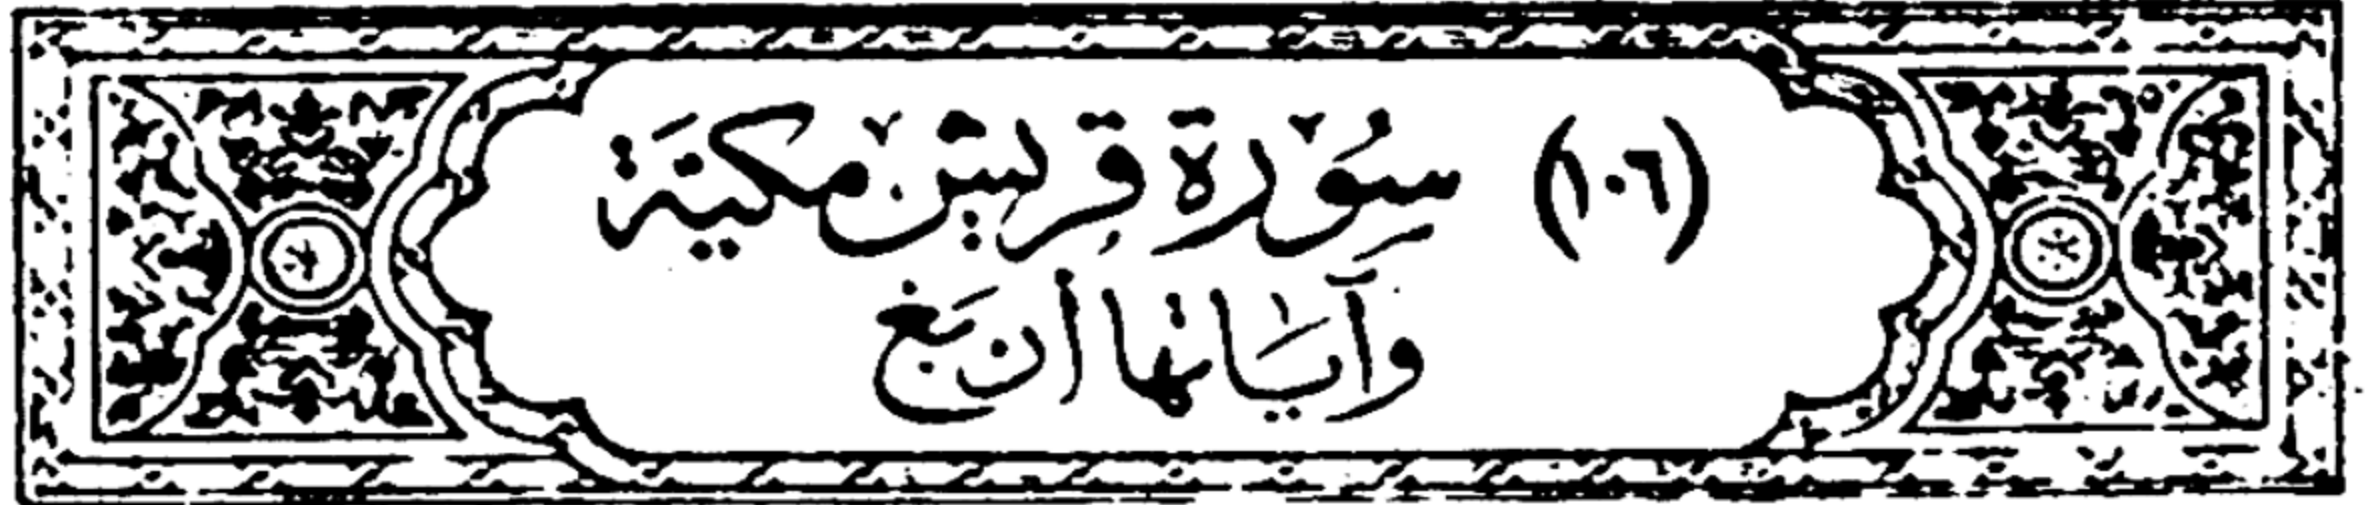 (١٠٦) سُوْرَة قريْش مكيَّة
وآيَاتها أربَع